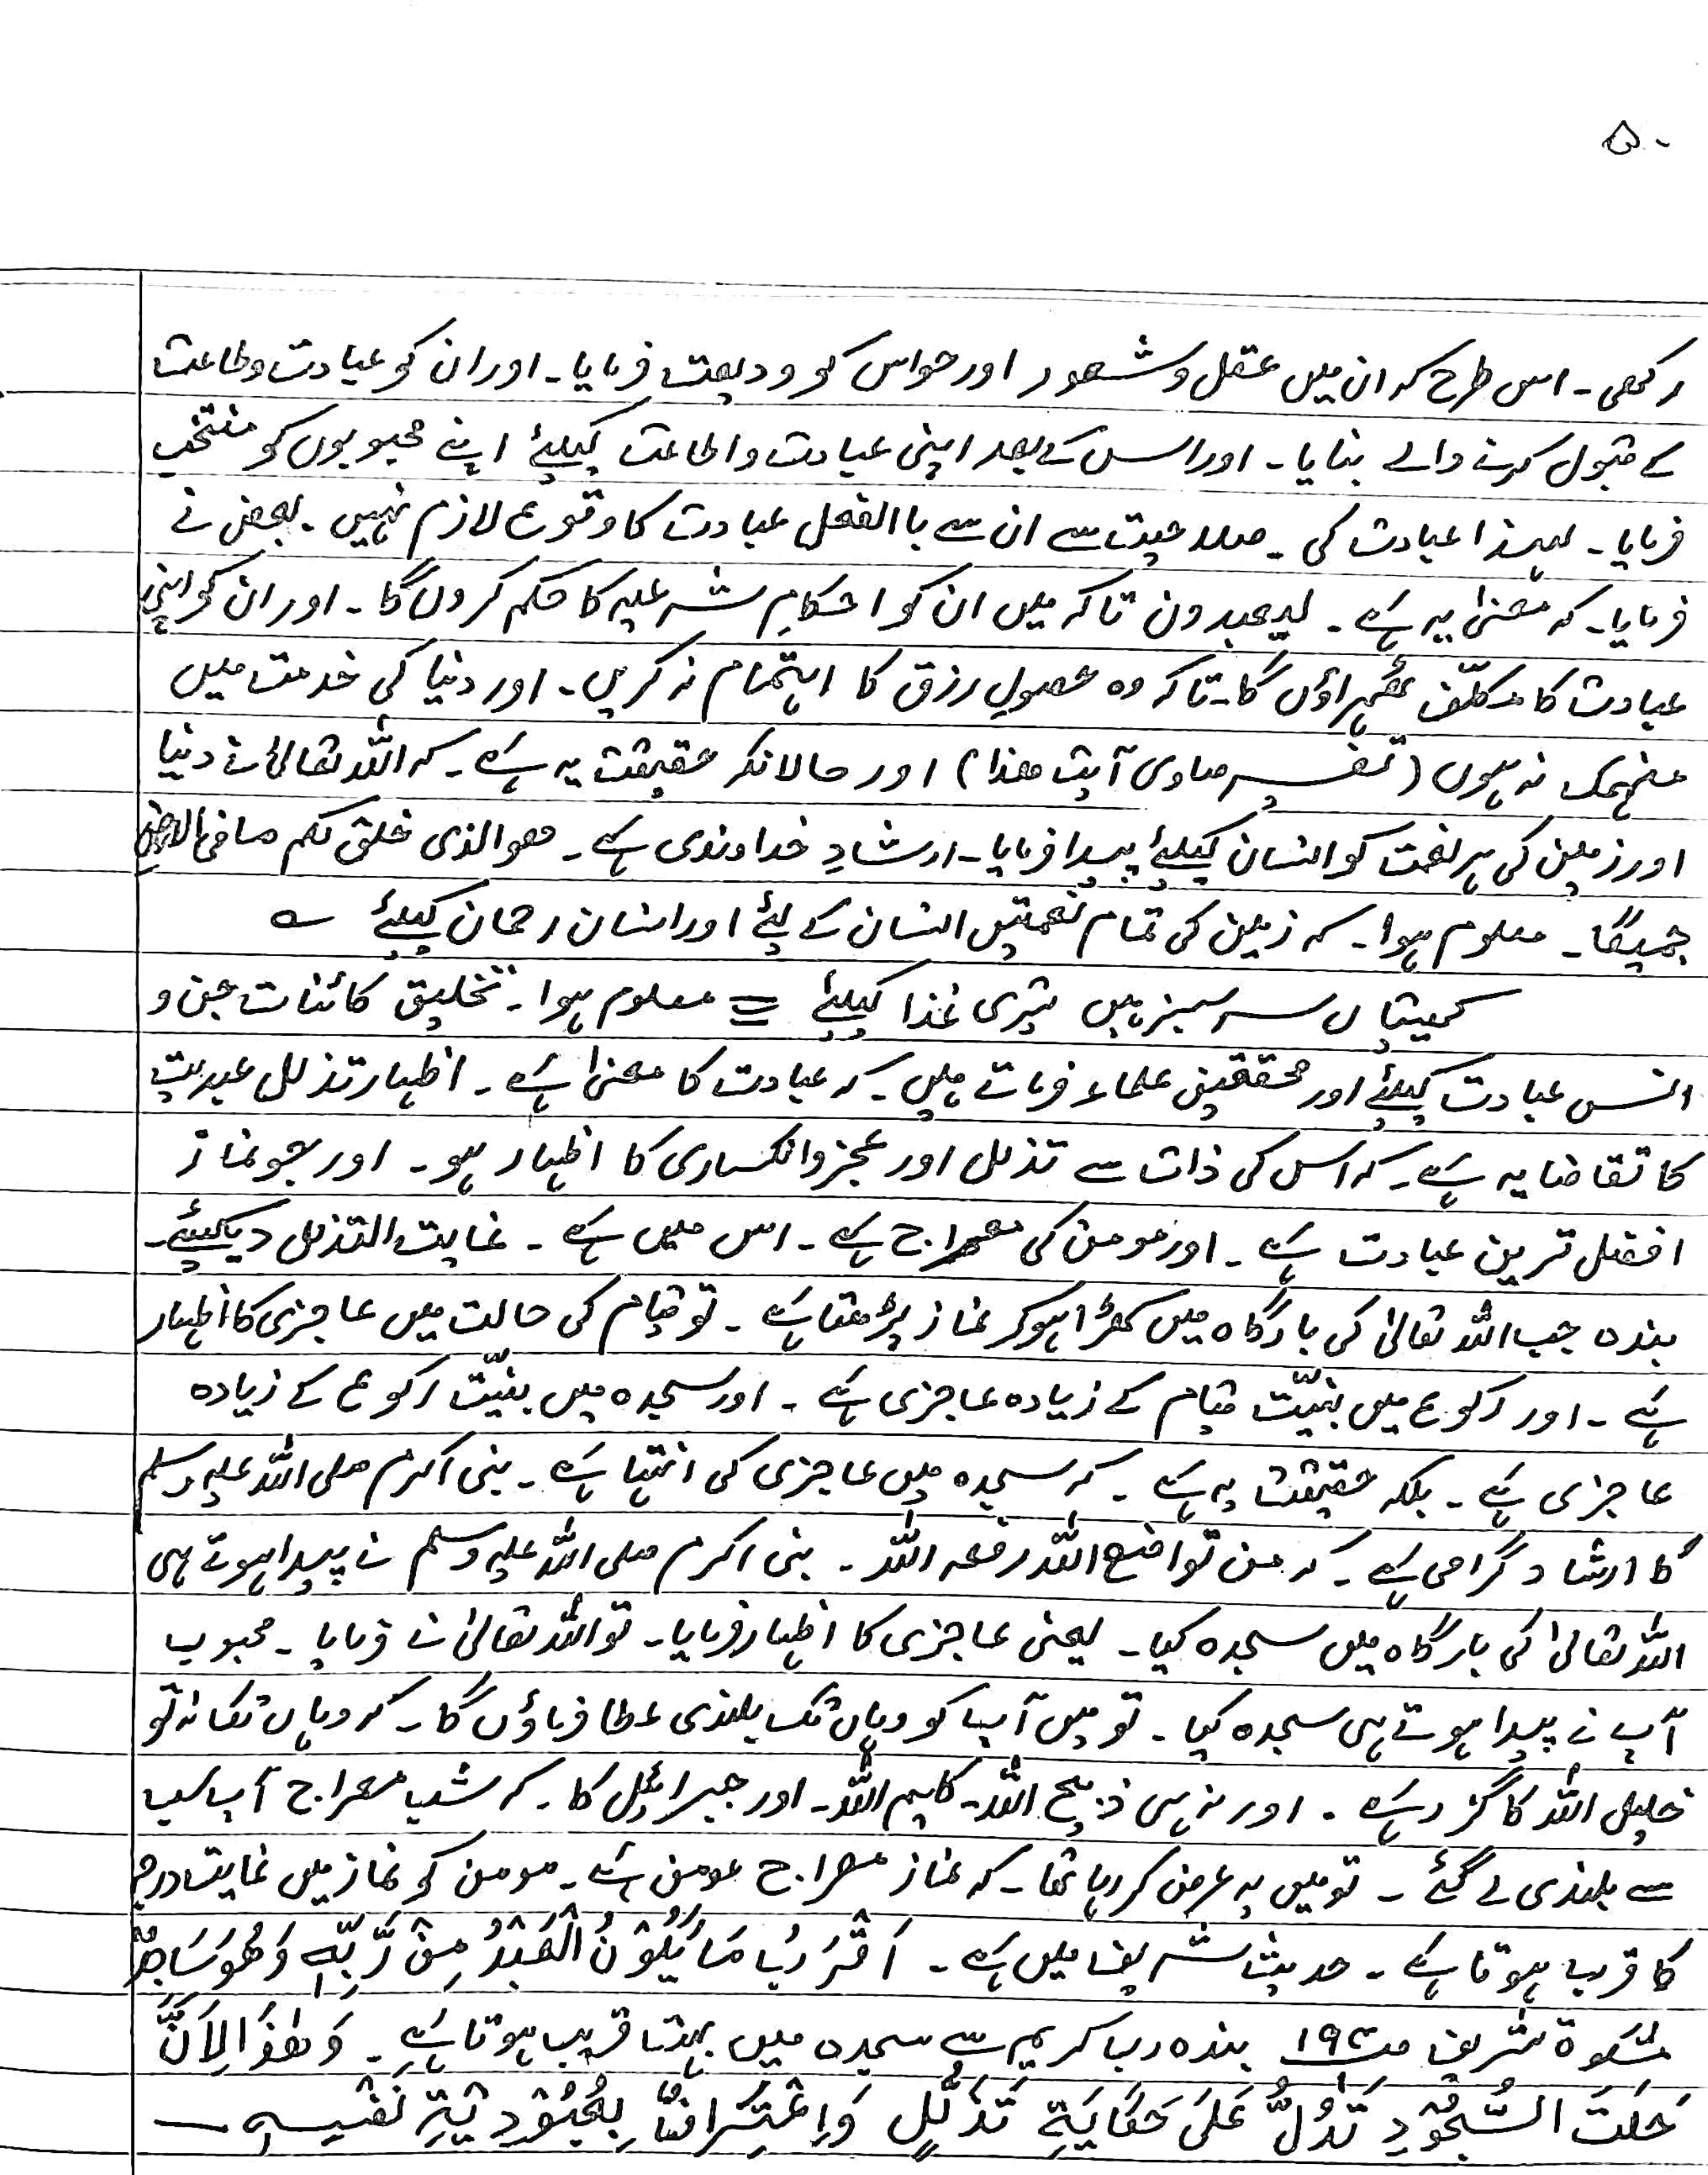 ۵۰
رکھی۔ اس طرح کہ ان میں عقل و شعور اور حواس کو ودیعت فرمایا۔ اور ان کو عبادت و طاعت
کے قبول کرنے والے بنایا۔ اور اس کے بعد اپنی عبادت و اطاعت کیلئے اپنے محبوبوں کو منتخب
فرمایا۔ لہٰذا عبادت کی ۔ صلاحیت سے ان سے باالفعل عبادت کا وقوع لازم نہیں۔ بعض نے
فرمایا۔ کہ معنیٰ یہ ہے ۔ لیعبدون تاکہ میں ان کو احکامِ شرعیہ کا حکم کروں گا ۔ اور ان کو اپنی
عبادت کا مکلّف ٹھہراؤں گا۔ تاکہ وہ حصولِ رزق کا اہتمام نہ کریں۔ اور دنیا کی خدمت میں
منہمک نہ ہوں (تفسیر صاوی آیت ھذا) اور حالانکہ حقیقت یہ ہے ۔ کہ اللہ تعالیٰ نے دنیا
اور زمین کی ہر نعمت کو انسان کیلئے پیدا فرمایا۔ ارشادِ خداوندی ہے ۔ ھوالذی خلق لکم ما فی الارض
جمیعًا۔ معلوم ہوا۔ کہ زمین کی تمام نعمتیں انسان کے لئے اور انسان رحمان کیلئے ؎
کھیتیاں سرسبز ہیں تیری غذا کیلئے = معلوم ہوا۔ تخلیق کائنات جن و
انس عبادت کیلئے اور محققین علماء فرماتے ہیں۔ کہ عبادت کا معنیٰ ہے ۔ اظہار تذلل عبدیت
کا تقاضا یہ ہے۔ کہ اس کی ذات سے تذلل اور عجز و انکساری کا اظہار ہو۔ اور جو نماز
افضل ترین عبادت ہے ۔ اور مومن کی معراج ہے ۔ اس میں ہے ۔ غایت التذلل دیکھئے۔
بندہ جب اللہ تعالیٰ کی بارگاہ میں کھڑا ہو کر نماز پڑھتا ہے ۔ تو قیام کی حالت میں عاجزی کا اظہار
ہے ۔ اور رکوع میں بنیّت قیام کے زیادہ عاجزی ہے ۔ اور سجدہ میں بنیّت رکوع کے زیادہ
عاجزی ہے ۔ بلکہ حقیقت یہ ہے ۔ کہ سجدہ میں عاجزی کی انتہا ہے ۔ نبی اکرم صلی اللہ علیہ وسلم
کا ارشاد گرامی ہے ۔ کہ من تواضع اللہ رفعہ اللہ ۔ نبی اکرم صلی اللہ علیہ وسلم نے پیدا ہوتے ہی
اللہ تعالیٰ کی بارگاہ میں سجدہ کیا ۔ یعنی عاجزی کا اظہار فرمایا۔ تو اللہ تعالیٰ نے فرمایا ۔ محبوب
آپ نے پیدا ہوتے ہی سجدہ کیا ۔ تو میں آپ کو وہاں تک بلندی عطا فرماؤں گا۔ کہ وہاں تک نہ تو
خلیل اللہ کا گزر ہے ۔ اور نہ ہی ذبیح اللہ۔ کلیم اللہ۔ اور جبرائیل کا ۔ کہ شب معراج آپ سب
سے بلندی لے گئے ۔ تو میں یہ عرض کر رہا تھا ۔ کہ نماز معراج مومن ہے ۔ مومن کو نماز میں غایت درجہ
کا قرب ہوتا ہے ۔ حدیث شریف میں ہے ۔ اَقْرَبُ مَا یَکُوْنُ الْعَبْدُ مِنْ رَّبِّہٖ وَھُوَ سَاجِدٌ
مشکوۃ شریف بندہ رب کریم سے سجدہ میں بہت قریب ہوتا ہے ۔ وَھٰذَا لِاَنَّ
حَلَتَ السُّجُوْدِ تَدُلُّ عَلیٰ حَکَایَۃِ تَذَلُّلٍ وَاِعْتِرَافٍ بِعُبُوْدِیَّۃِ نَفْسِہٖ ۔